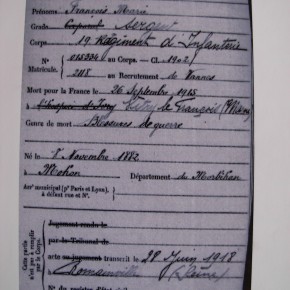 Prénoms François Marie
Grade Caporal Sergent
Corps 19 Régiment d'Infanterie
N° 015334 au Corps. — Cl. 1902
Matricule. 2118 au Recrutement de Vannes
Mort pour la France le 26 Septembre 1915
Vitry le François (Marne)
Genre de mort Blessures de guerre
Né le 8 Novembre 1882
à Mohon Département du Morbihan
Arr' municipal (pr Paris et Lyon),
à défaut rue et N°.
Cette partie
n'est pas à remplir
par le Corps.
Jugement rendu le
par le Tribunal de
acte ou jugement transcrit le 28 Juin 1918
à Romainville (Seine)
N° du registre d'état civil